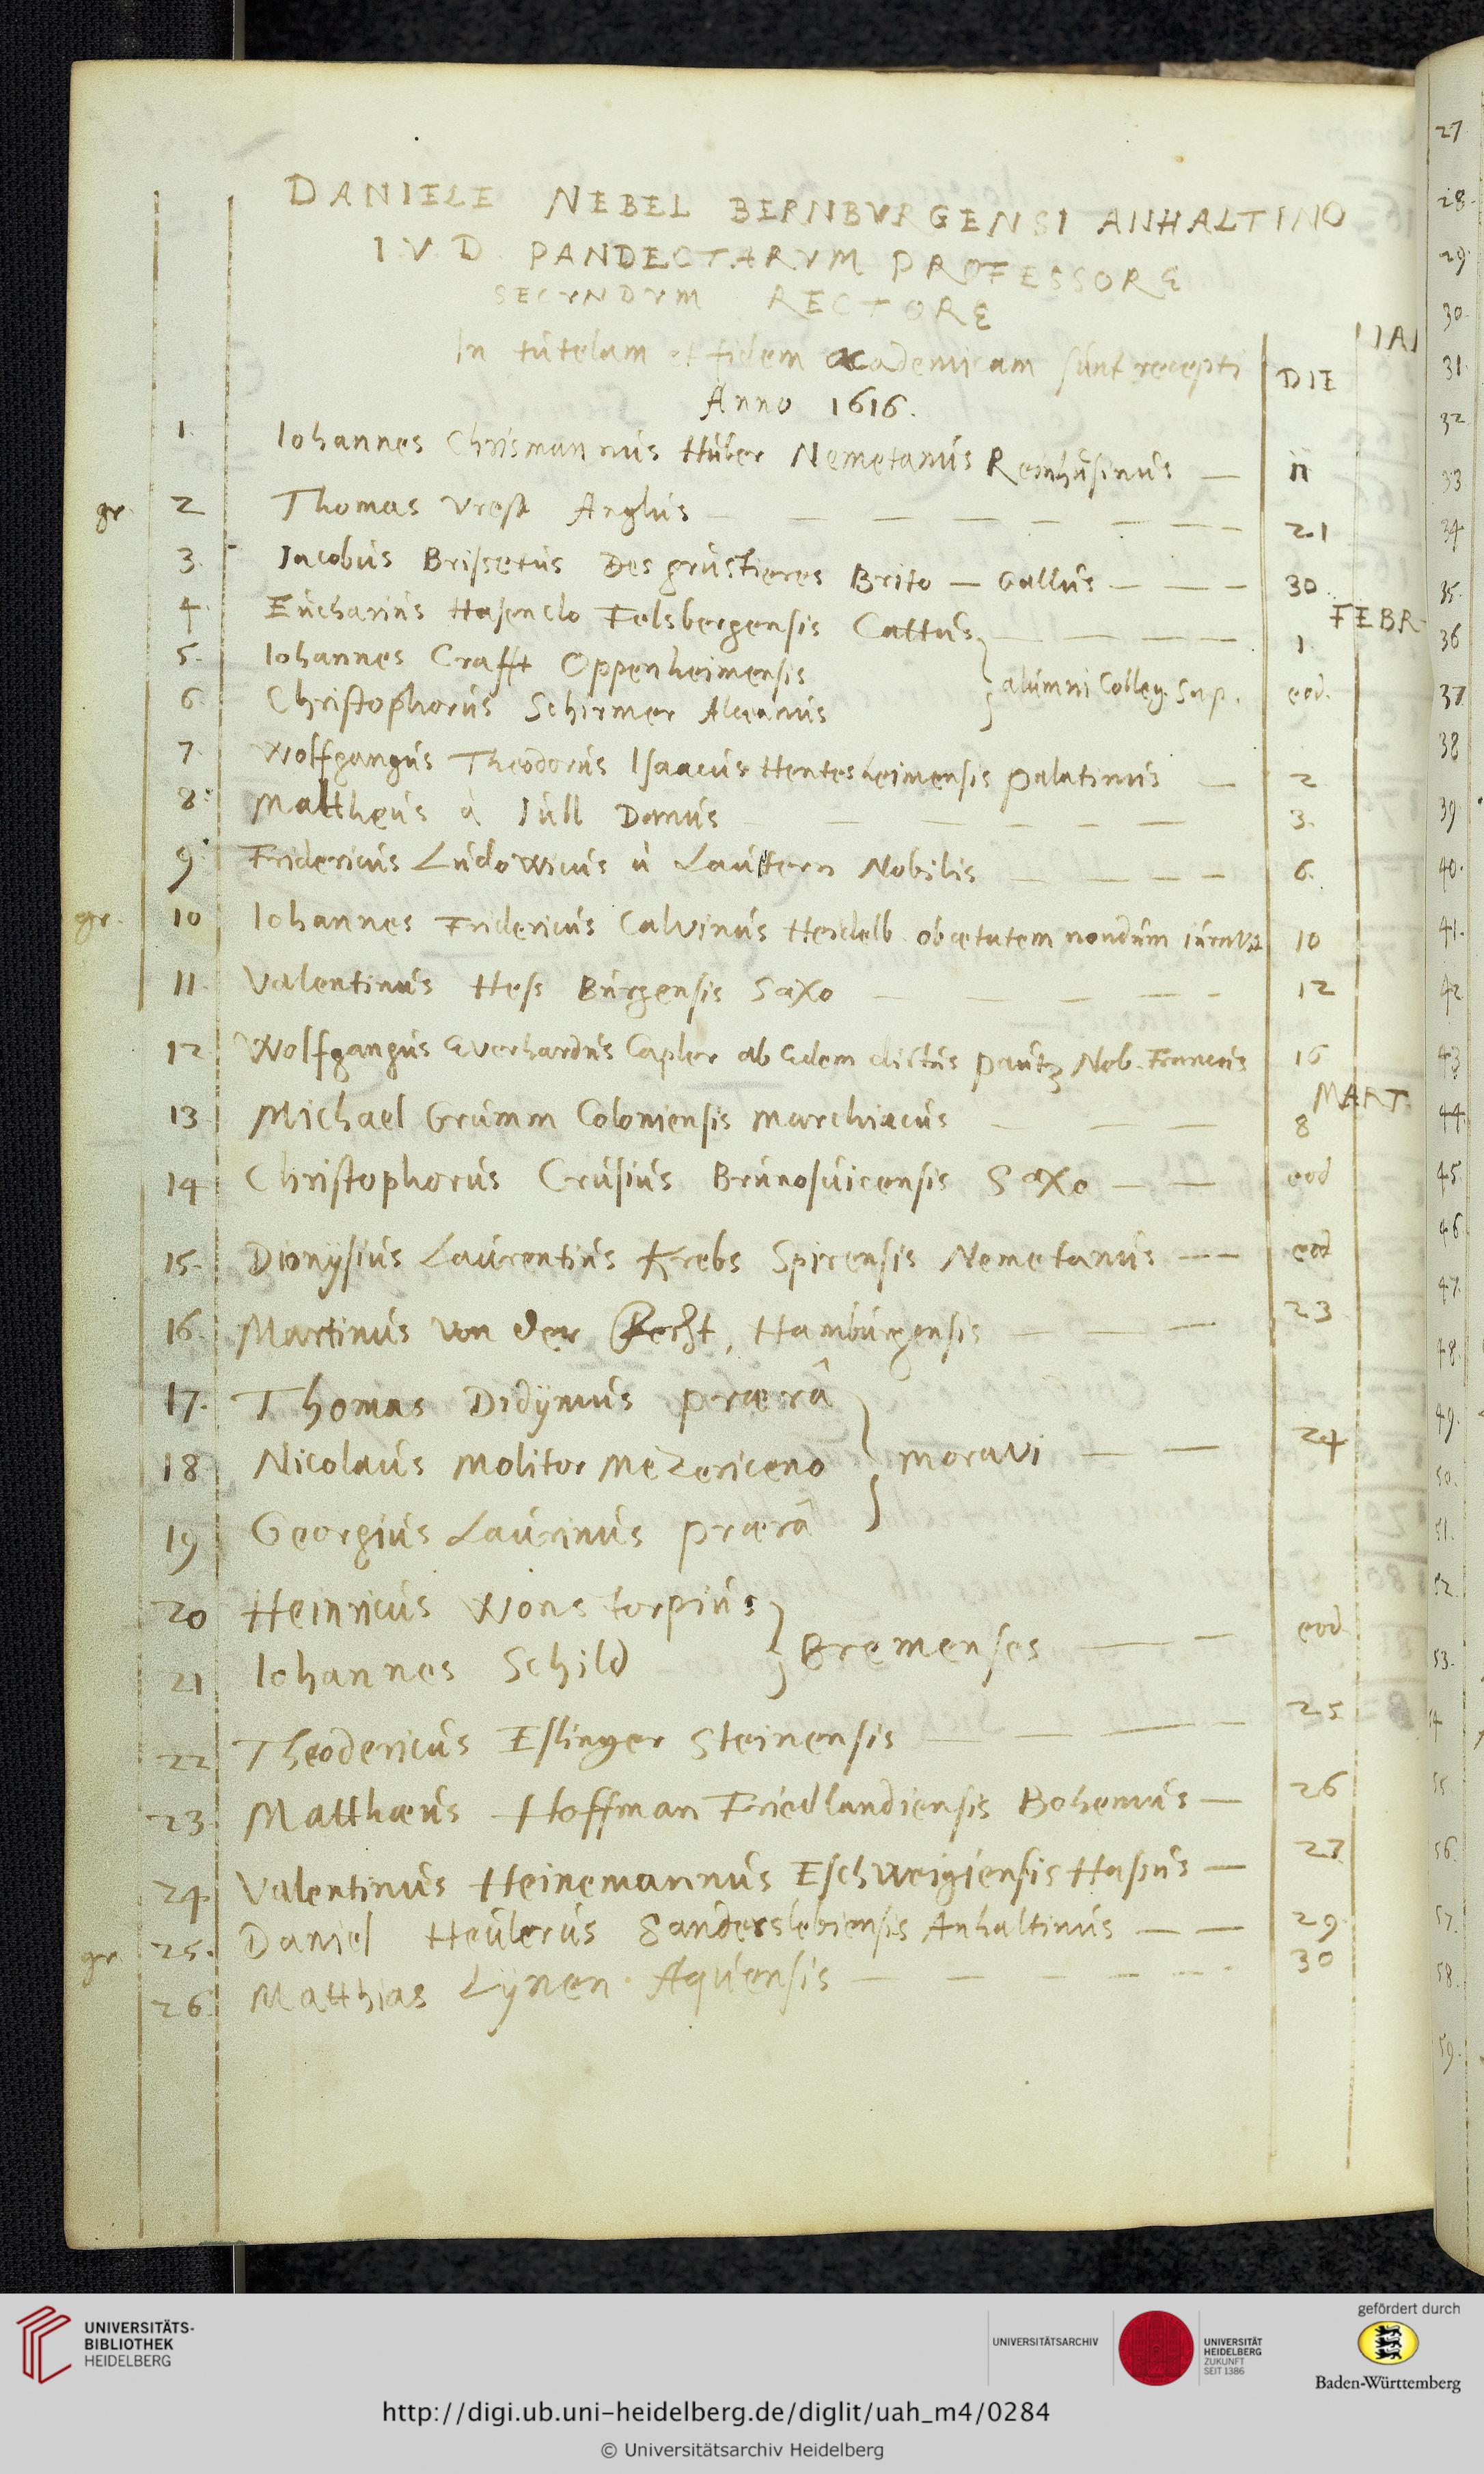 DANIELE NEBEL BERNBVRGENSI ANHALTINO
I. V. D. PANDECTARVM PROFESSORE
SECVNDVM RECTORE
In tutelam et fidem academicam sunt recepti
DIE IAI
Anno 1616.
1. Iohannes Chrismannus Huber Nemetanus Reinhusinus — 11
gr. 2 Thomas Vrest Anglus — 21
3. Iacobus Brissetus Des grustieres Brito — Gallus — 30
FEBR.
4. Eucharius Hasenclo Felsbergensis Cattus — 1.
5. Iohannes Crafft Oppenheimensis
6 Christophorus Schirmer } alumni Colleg. Sap. eod.
7. Wolfgangus Theodorus Isaacus Hentesheimensis Palatinus — 2
8. Mattheus à Iull Danus — 3.
9. Fridericus Ludowicus à Lauttern Nobilis — 6.
gr. 10 Iohannes Fridericus Calvinus Heidelb. ob ætatem nondum iuravit 10
11. Valentinus Hess Burgensis Saxo — 12
12 Wolfgangus Everhardus Capler ab Edem dictus Pautz Nob. Francus 16
MART.
13. Michael Grumm Coloniensis Marchiacus — 8
14 Christophorus Crusius Brunosuicensis Saxo — eod
15. Dionysius Laurentius Krebs Spirensis Nemetanus — eod
16. Martinus von der Fecht, Hamburgensis — 23
17. Thomas Didymus Prærâ
18 Nicolaus Molitor Mezericeno } Moravi — 24
19 Georgius Laurinus Prærâ
20 Heinricus Wonstorpius
21 Iohannes Schild } Bremenses — eod
22 Theodericus Eslinger Steinensis — 25
23. Matthæus Hoffman Friedlandiensis Bohemus — 26
24. Valentinus Heinemannus Eschweigiensis Hassus — 27
gr. 25. Daniel Heulerus Sanderslebiensis Anhaltinus — 29
26. Matthias Lynen Aquensis — 30
27
28.
29.
30.
31.
32
33
34.
35.
36
37.
38
39.
40.
41.
42
43
44.
45.
46
47.
48.
49.
50.
51.
52.
53.
55.
56.
57.
58.
59.
UNIVERSITÄTS-
BIBLIOTHEK
HEIDELBERG
UNIVERSITÄTSARCHIV
UNIVERSITÄT
HEIDELBERG
ZUKUNFT
SEIT 1386
gefördert durch
Baden-Württemberg
http://digi.ub.uni-heidelberg.de/diglit/uah_m4/0284
© Universitätsarchiv Heidelberg